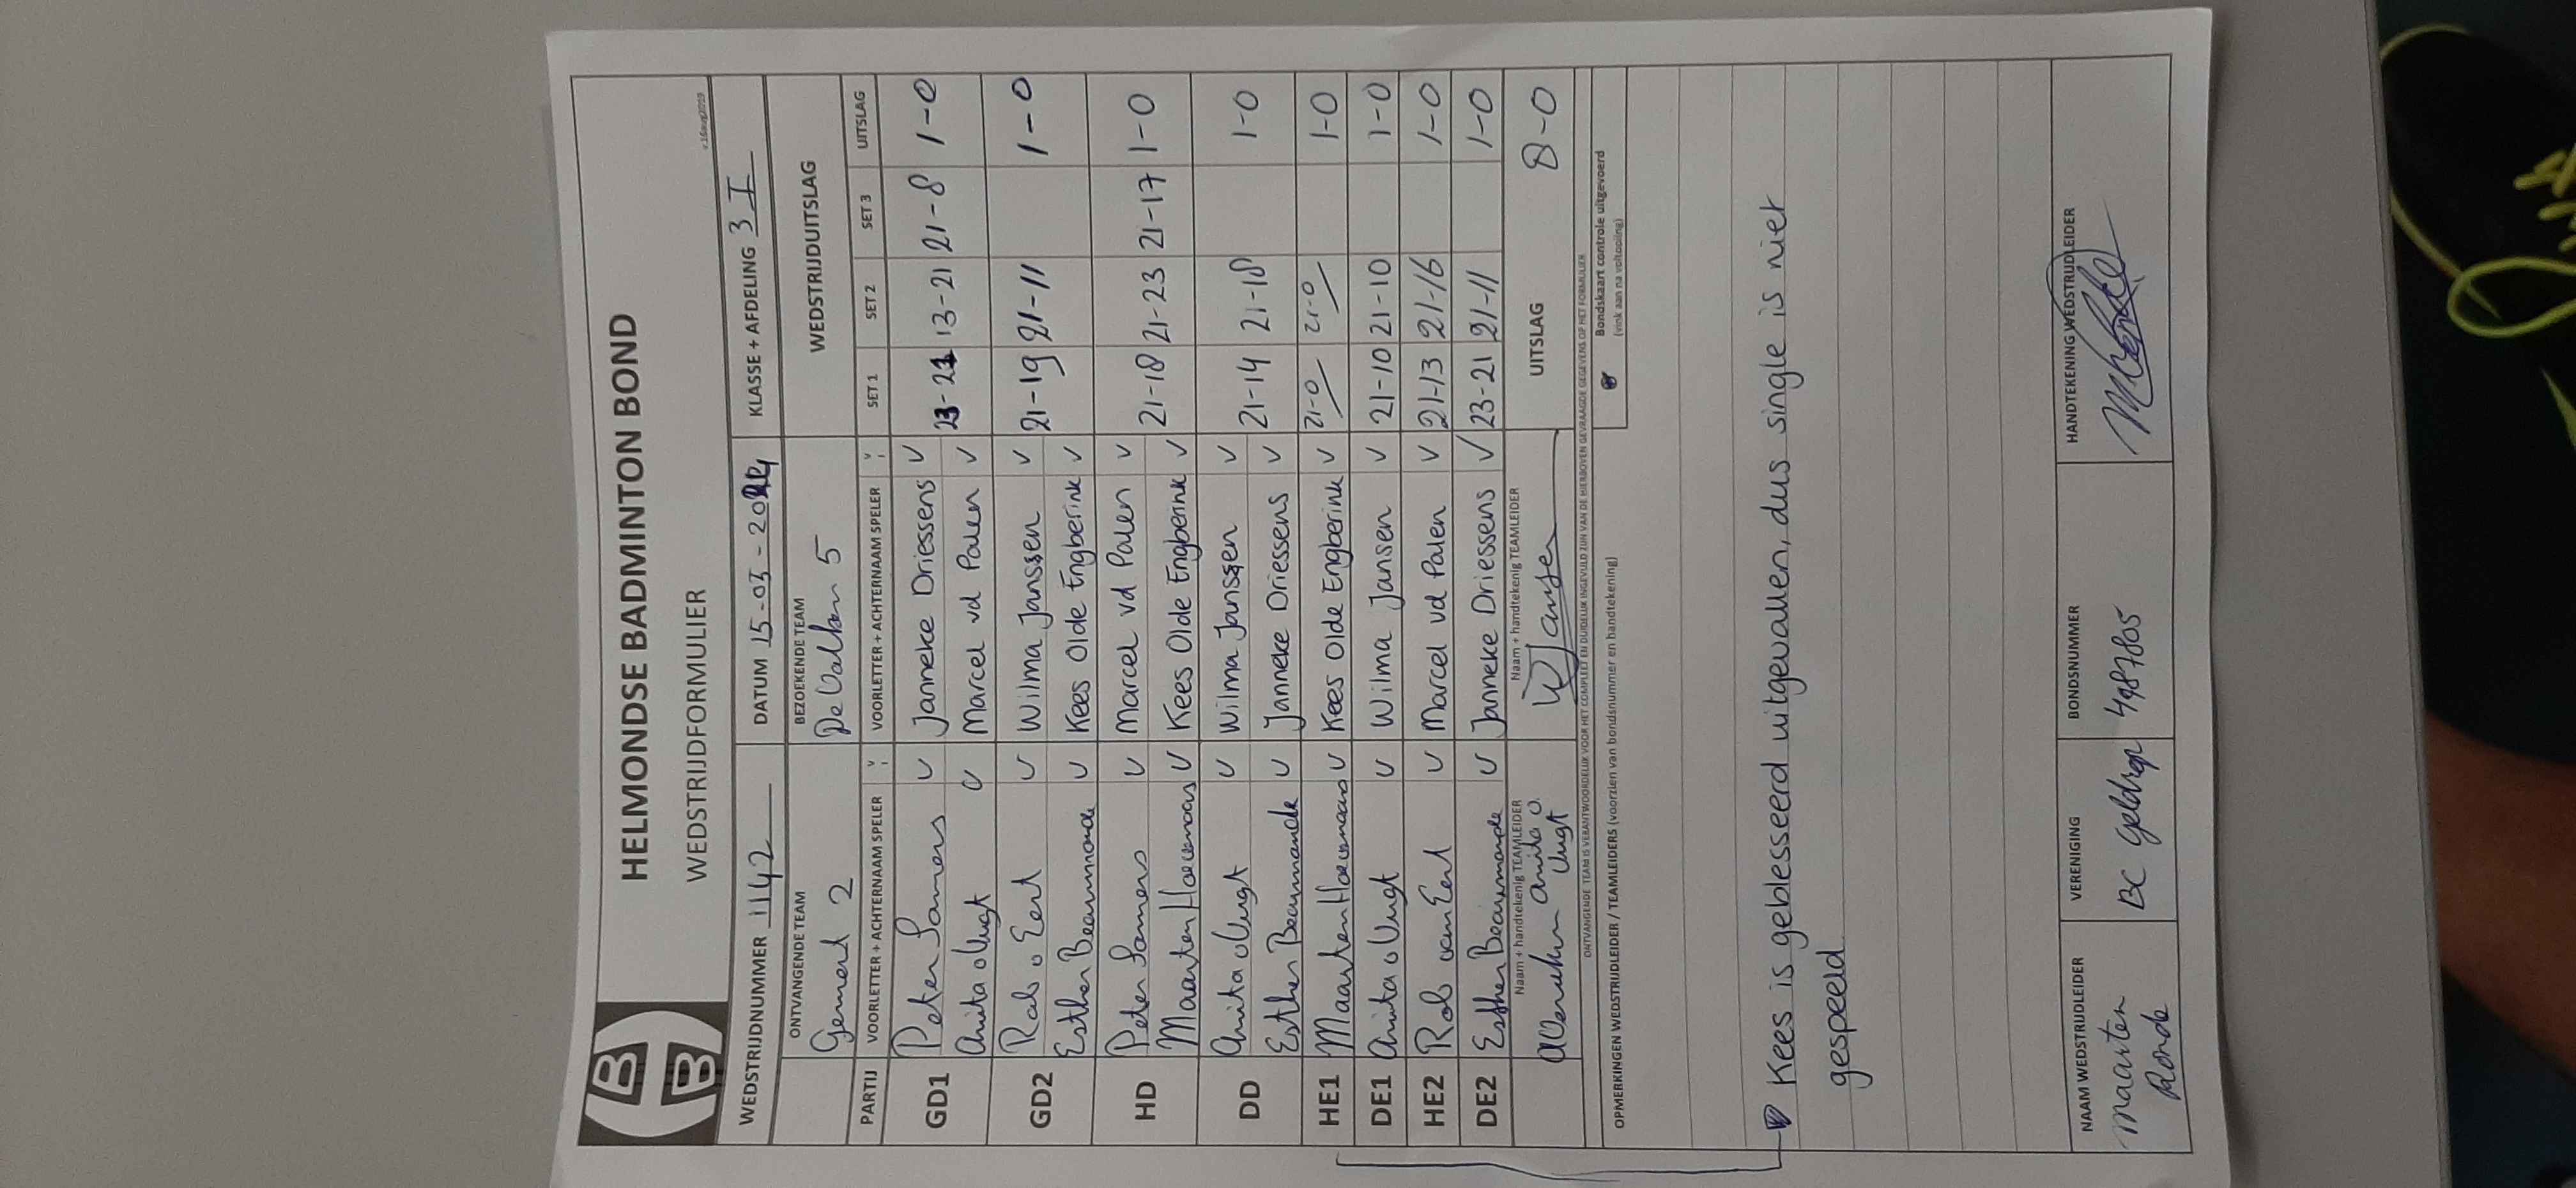 HBB
HELMONDSE BADMINTON BOND
WEDSTRIJDFORMULIER
WEDSTRIJDNUMMER 1142 DATUM 15-03-2024 KLASSE + AFDELING 3 I
ONTVANGENDE TEAM BEZOEKENDE TEAM WEDSTRIJDUITSLAG
Gemert 2 De Valken 5
PARTIJ VOORLETTER + ACHTERNAAM SPELER V VOORLETTER + ACHTERNAAM SPELER V SET 1 SET 2 SET 3 UITSLAG
GD1 Peter Somers v Janneke Driessens v 23-21 13-21 21-8 1-0
Anita v Vugt v Marcel vd Palen v
GD2 Rob v Eert v Wilma Janssen v 21-19 21-11 1-0
Esther v Kees Olde Engberink v
HD Peter Somers v Marcel vd Palen v 21-18 21-23 21-17 1-0
Maarten v Kees Olde Engberink v
DD Anita v Vugt v Wilma Janssen v 21-14 21-18 1-0
Esther v Janneke Driessens v
HE1 Maarten v Kees Olde Engberink v 21-0 21-0 1-0
DE1 Anita v Vugt v Wilma Jansen v 21-10 21-10 1-0
HE2 Rob van Eert v Marcel vd Palen v 21-13 21-16 1-0
DE2 Esther v Janneke Driessens v 23-21 21-11 1-0
Naam + handtekenig TEAMLEIDER Naam + handtekenig TEAMLEIDER UITSLAG 8-0
Anita v Vugt WJansen
ONTVANGENDE TEAM IS VERANTWOORDELIJK VOOR HET COMPLEET EN DUIDELIJK INGEVULD ZIJN VAN DE HIERBOVEN GEVRAAGDE GEGEVENS OP HET FORMULIER
Bondskaart controle uitgevoerd
(vink aan na voltooiing)
OPMERKINGEN WEDSTRIJDLEIDER / TEAMLEIDERS (voorzien van bondsnummer en handtekening)
Kees is geblesseerd uitgevallen, dus single is niet
gespeeld
NAAM WEDSTRIJDLEIDER VERENIGING BONDSNUMMER HANDTEKENING WEDSTRIJDLEIDER
Maarten BC Geldrop 498705
Ronde